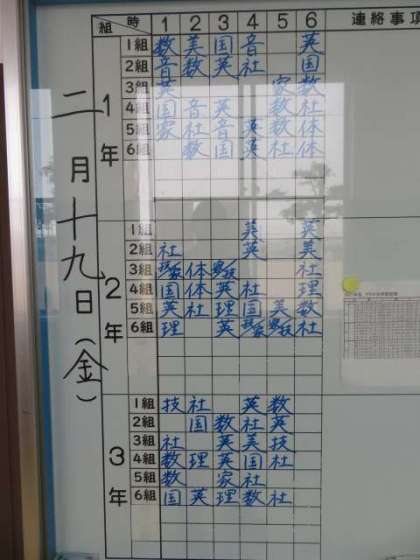 組 時 1 2 3 4 5 6 連絡事項
二月十九日(金)
1年
1組 数 美 国 音 英
2組 音 数 英 社 国
3組 英 家 数
4組 国 音 英 数 社
5組 家 社 音 英 数 体
6組 数 国 英 社 体
2年
1組 英 英
2組 社 英 美
3組 体 社
4組 国 体 英 社 理
5組 英 社 理 国 美 数
6組 理 英 社
3年
1組 技 社 英 数
2組 国 数 社 英
3組 社 英 美 技
4組 数 理 英 国 社
5組 数 家 社
6組 国 英 理 数 社